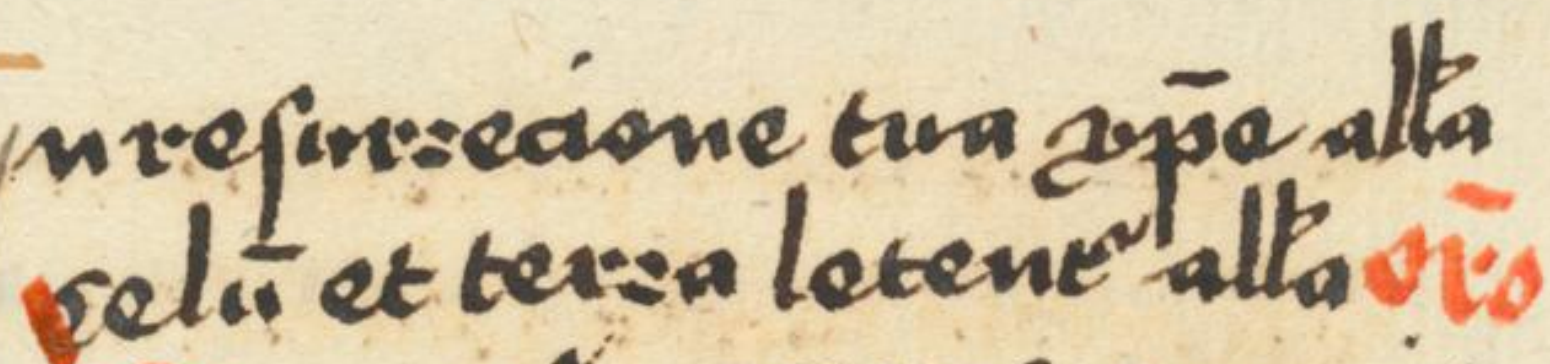 In resurrecione tua xp̄e all'a
celū et terra letent᷑ all'a or̄o